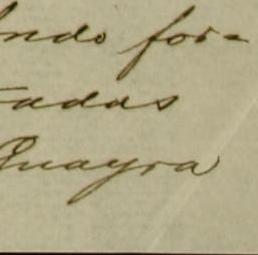 ndo for=
tadas
Guayra